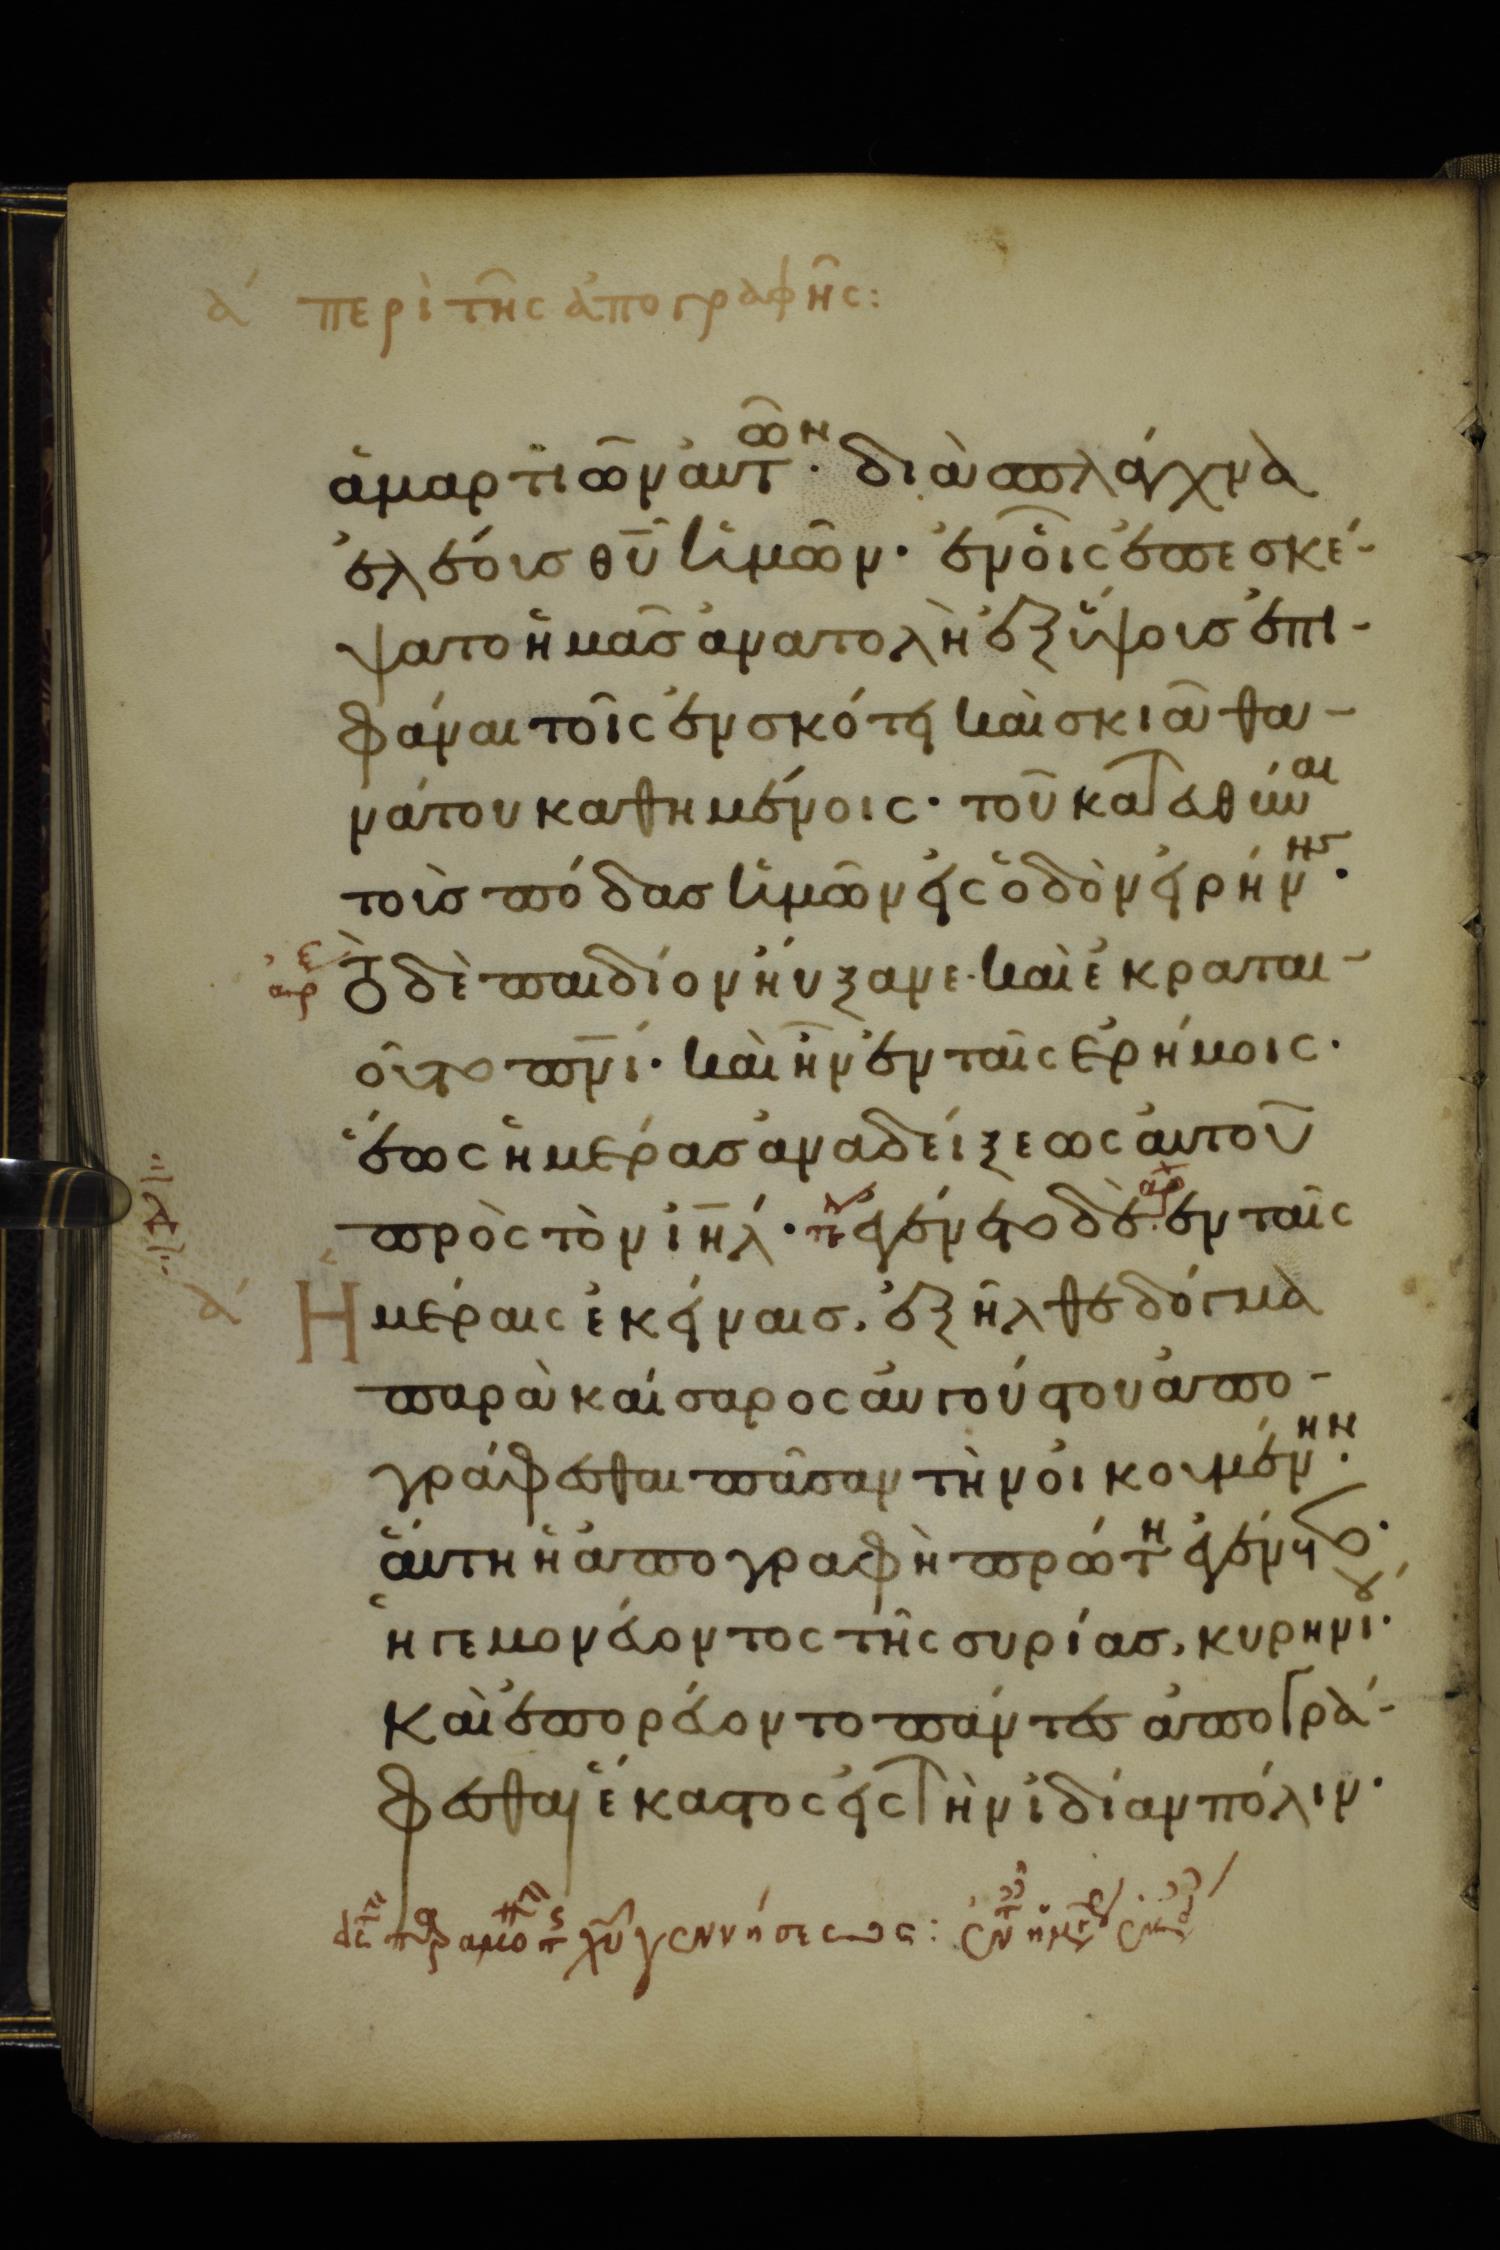 α´ περὶ τῆς ἀπογραφῆς:
ἁμαρτιῶν αὐτῶν· διὰ σπλάγχνα
ἐλέους θῡ ἡμῶν· ἐν οἷς ἐπεσκέ-
ψατο ἡμᾶς ἀνατολὴ ἐξ ὕψους ἐπι-
φάναι τοῖς ἐν σκότει καὶ σκιᾶ θα-
νάτου καθημένοις· τοῦ κατευθύναι
τοὺς πόδας ἡμῶν εἰς ὁδὸν εἰρήνης·
Τὸ δὲ παιδίον ηὔξανε· καὶ ἐκραται-
οῦτο πνῑ· καὶ ἦν ἐν ταῖς ἐρήμοις·
ἕως ἡμέρας ἀναδείξεως αὐτοῦ
πρὸς τὸν ιη̄λ· ἐγένετο δὲ ἐν ταῖς
α´ Ἡμέραις ἐκείναις, ἐξῆλθε δόγμα
παρὰ καίσαρος αὐγούστου ἀπο-
γράφεσθαι πᾶσαν τὴν οἰκουμένην·
αὕτη ἡ ἀπογραφὴ πρώτη ἐγένετο·
ἡγεμονεύοντος τῆς συρίας, κυρηνίου·
Καὶ ἐπορεύοντο πάντες ἀπογρά-
φεσθαι ἕκαστος εἰς τὴν ἰδίαν πόλιν·
χῡ γεννήσεως: